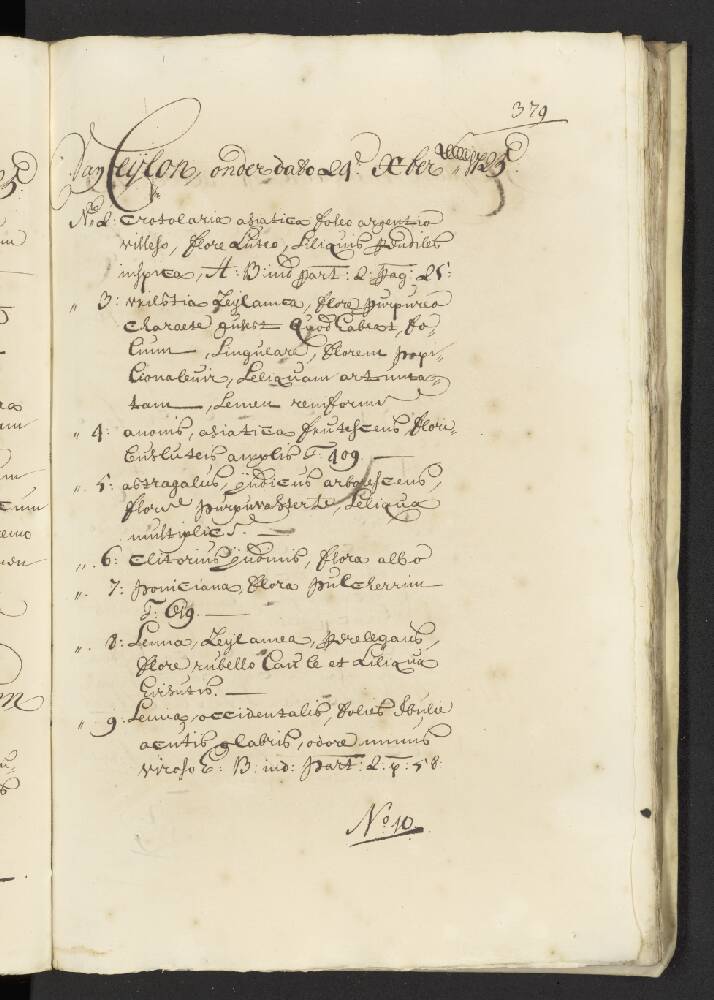 379
Van Ceÿlon, onder dato 29.e Xber 1725
No. 2: Crotolaria asiatica folio argentio
villoso, flore Luteo, Siliquis pendilis
inspica, H: B: ind part: 2: pag: 25:
" 3: Zeylanica, flore purpureo
Charaete quod habeat, fo-
lium, singulare, florem papi-
lionaleum, Seliquam articula-
tam, Semen reniforme
" 4: anonis, asiatica frutescens flori-
bus luteis amplis T: 409
" 5: astragalus, jndicus arborescens,
flore Seliqua
multiplici.
" 6: Clitorius jndonus, flora albo
" 7: poniciana, flora pulcherrim
T: 619.
" 8: Senna, Zeylanica, perelegans,
flore rubello Caule et Siliqua
hirsutis.
" 9. Senna, occidentalis, foliis
acutis glabris, odore minus
viroso H: B: ind: part: 2: p: 58:
No. 10.